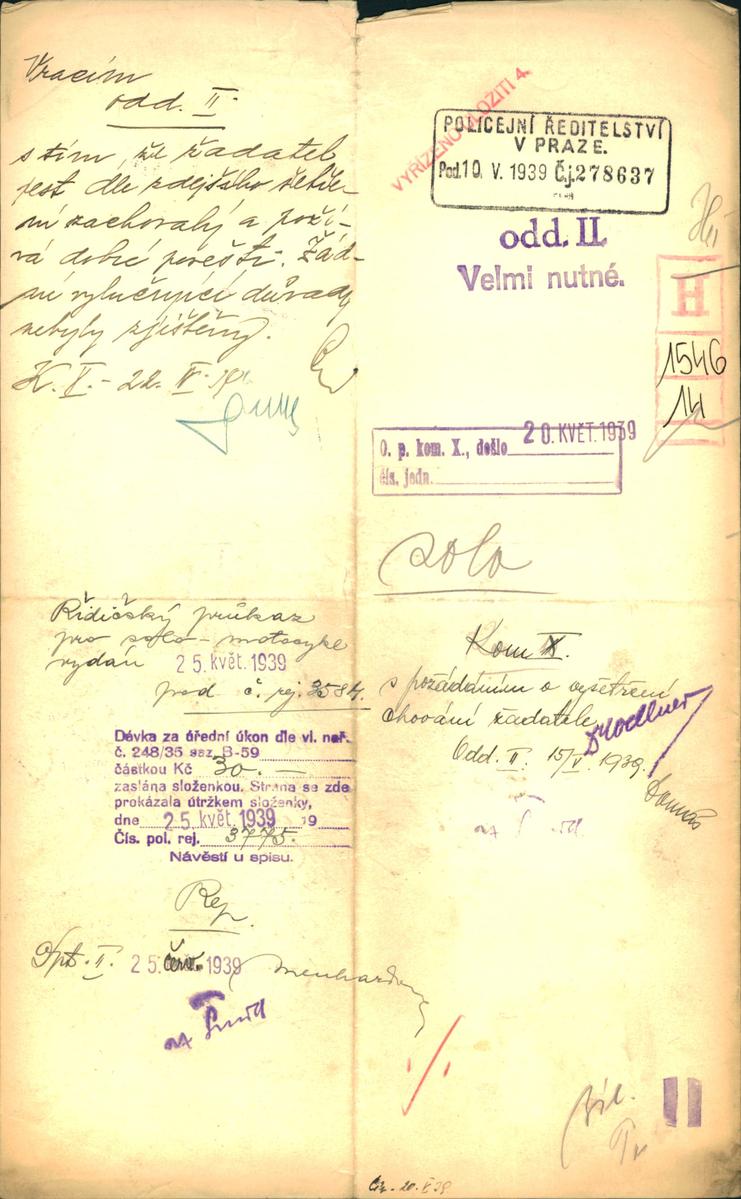 Vracím
odd. II.
s tím, že žadatel
jest dle zdejšího šetře-
ní zachovalý a poží-
vá dobré pověsti. Žád-
né vylučující důvody
nebyly zjištěny.
Řidičský průkaz
pro solo-motocykl
vydán 25. květ. 1939
pod č. rej. 3584.
Dávka za úřední úkon dle vl. nař.
č. 248/35 saz. B-59
částkou Kč 30.—
zaslána složenkou. Strana se zde
prokázala útržkem složenky,
dne 25. květ. 1939 19
Čís. pol. rej. 3775.
Návěstí u spisu.
Rep.
II. 25. 1939
VYŘÍZENO ULOŽITI 4.
POLICEJNÍ ŘEDITELSTVÍ
V PRAZE.
Pod. 10 V. 1939 Č.j. 278637
odd. II.
Velmi nutné.
H
1546
14
20. KVĚT. 1939
O. p. kom. X., došlo
čís. jedn.
solo
Kom X.
s požádáním o vyšetření
chování žadatele
Odd. II. 15/V. 1939.
./.
II